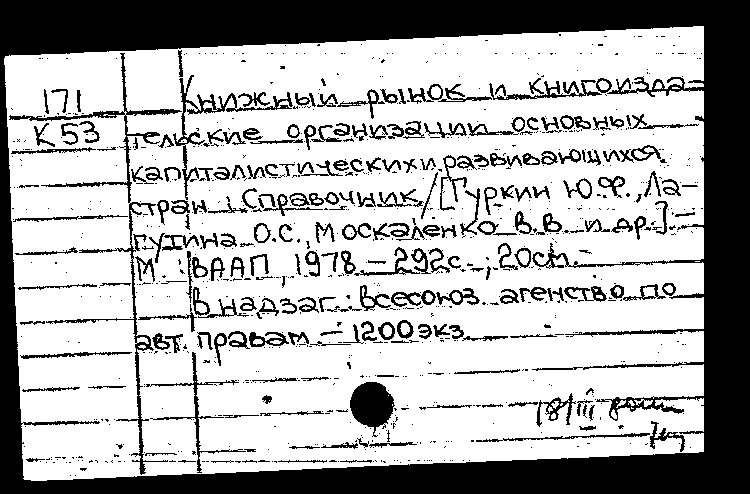 171
К53
Книжный рынок и книгоизда-
тельские организации основных
капиталистических и развивающихся
стран : Справочник / [Гуркин Ю.Ф., Ла-
путина О.С., Москаленко В.В. и др.].-
М. : ВААП, 1978. – 292с.; 20см.-
В надзаг.: Всесоюз. агенство по
авт. правам. – 1200 экз.
18/III